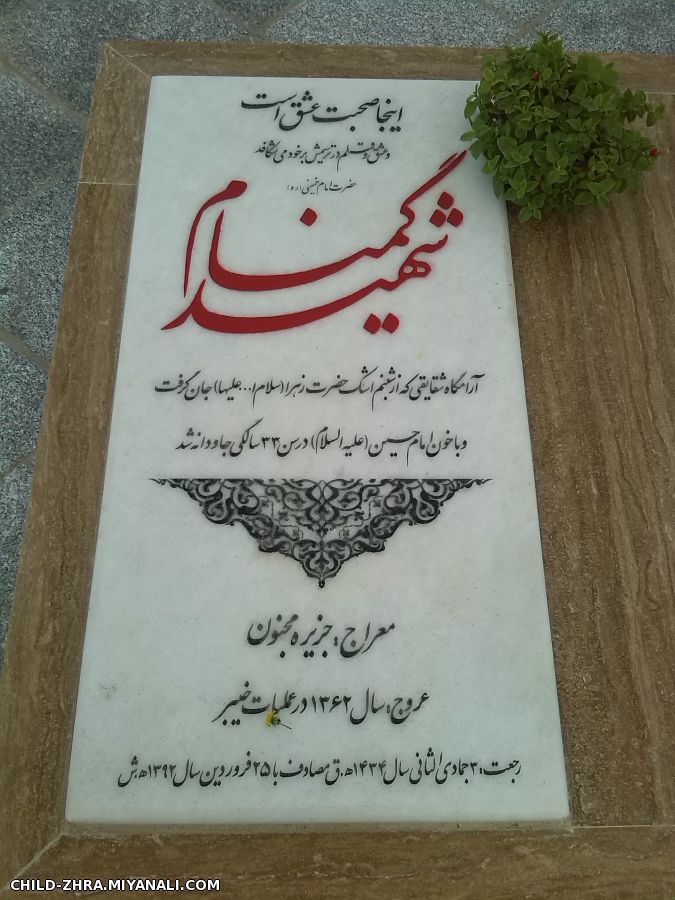 اینجا صحبت عشق است
و عشق و قلم در ترسیمش بر خود می شکافد
حضرت امام خمینی (ره)
شهید گمنام
آرامگاه شقایقی که از شبنم اشک حضرت زهرا (سلام ا... علیها) جان گرفت
و با خون امام حسین (علیه السلام) در سن ۳۳ سالگی جاودانه شد
معراج : جزیره مجنون
عروج : سال ۱۳۶۲ در عملیات خیبر
رجعت : ۳ جمادی الثانی سال ۱۴۳۴ ه.ق مصادف با ۲۵ فروردین سال ۱۳۹۲ ه.ش
CHILD-ZHRA.MIYANALI.COM